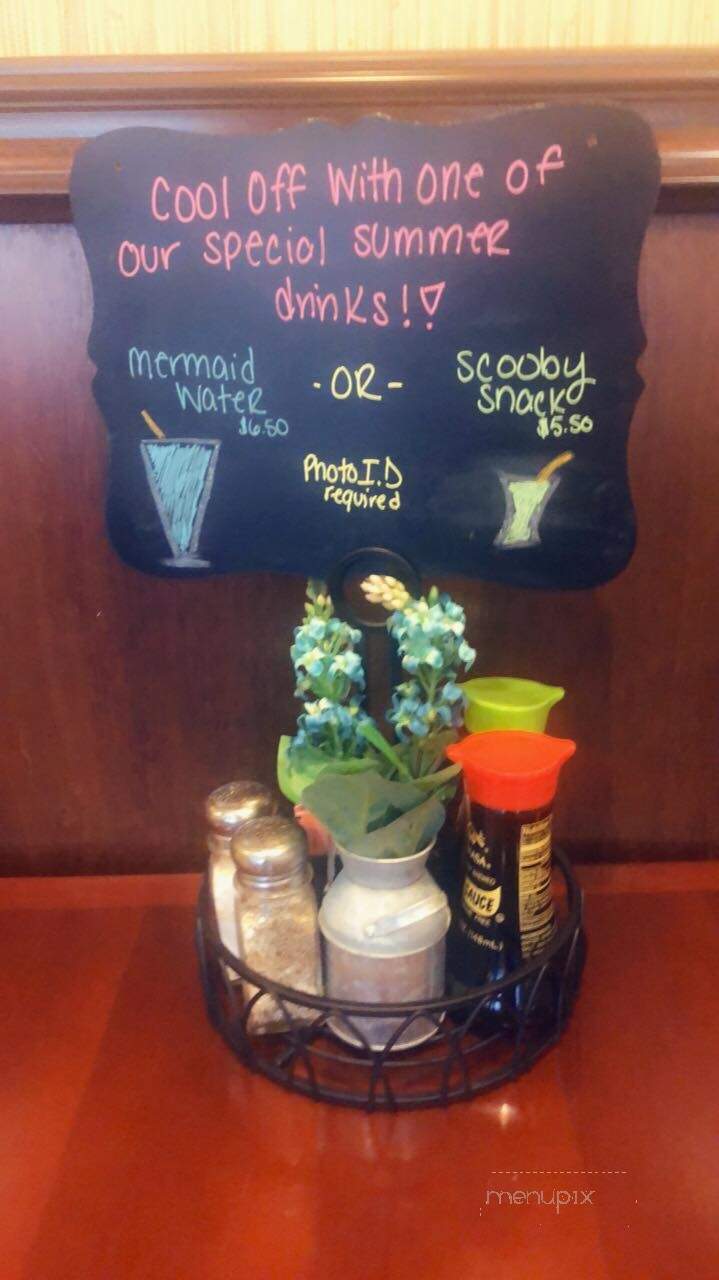 Cool Off With One of
our special summer
drinks!
mermaid
water
$6.50
-OR-
scooby
snack
$5.50
Photo I.D
required
SAUCE
menupix